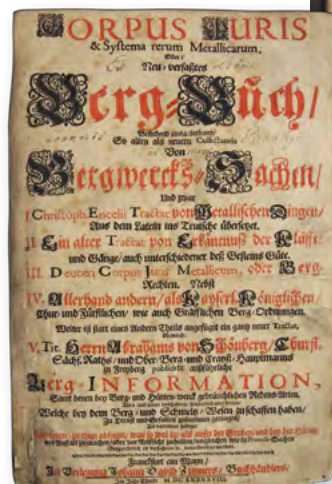 CORPUS JURIS
& Systema rerum Metallicarum,
Oder /
Neu-verfaßtes
Berg-Buch /
Bestehend
So alten als neuern Collectaneis
Von
Bergwercks-Sachen /
Und zwar
I. Christoph Encelii Tractat von Metallischen Dingen /
Aus dem Latein ins Teutsche übersetzet.
II. Ein alter Tractat von Erkäntnuß der Klüffte
und Gänge / auch unterschiedener deß Gesteins Güte.
III. Deuteri Corpus Juris Metallicum, oder Berg-
Rechten. Nebst
IV. Allerhand andern / als Kayserl. Königlichen /
Chur- und Fürstlichen / wie auch Gräfflichen Berg-Ordnungen.
Weiter ist statt eines Andern Theils angefügt ein gantz neuer Tractat,
V. Tit. Herrn Abrahams von Schönberg / Churfl.
Sächs. Raths / und Ober-Berg- und Crayß-Hauptmanns
zu Freyberg publicirte ausführliche
Berg-INFORMATION,
Samt denen bey Berg- und Hütten-werck gebräuchlichen Redens-Arten,
Welche bey dem Berg- und Schmeltz-Wesen zuschaffen haben /
Franckfurt am Mayn /
In Verlegung Johann David Zunners / Buchhändlers /